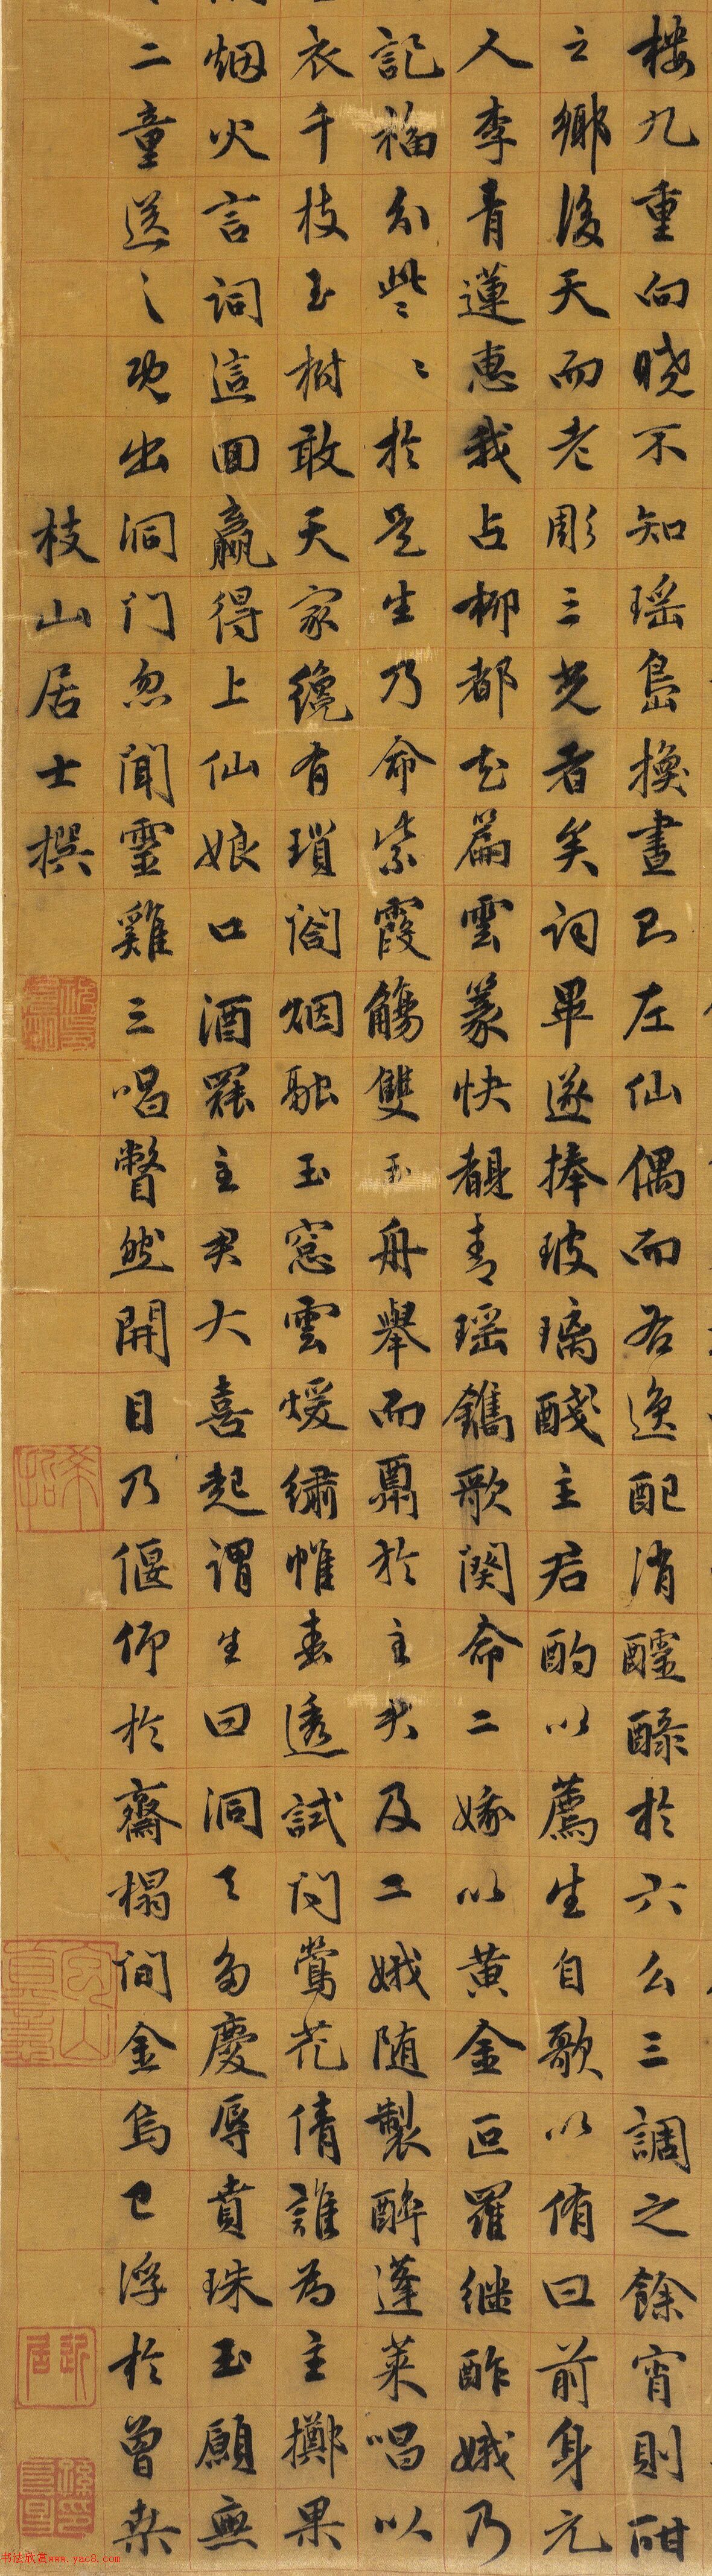 楼九重向曉不知瑶島換晝已左仙偶而右逸配消醽醁於六么三調之餘宵則酣
之鄉後天而老彫三光者矣詞畢遂捧玻璃醆主君酌以薦生自歌以侑曰前身元
人李青蓮惠我占柳都花篇雲篆快覩青瑶鐫歌闋命二娥以黄金叵羅繼酢娥乃
記福分些些於是生乃命紫霞觴雙玉舟舉而酹於主君及二娥随製醉蓬萊唱以
衣千枝玉樹敢天家纔有瑣閤烟融玉窓雲煖繡帷春透試问鶯花倩誰為主擲果
烟火言詞這回贏得上仙娘口酒罷主君大喜起謂生曰洞天多慶辱賁珠玉願無
二童送之既出洞门忽聞靈雞三唱瞥然開目乃偃仰於齋榻间金烏已浮於曾桑
枝山居士撰
书法欣赏www.yac8.com